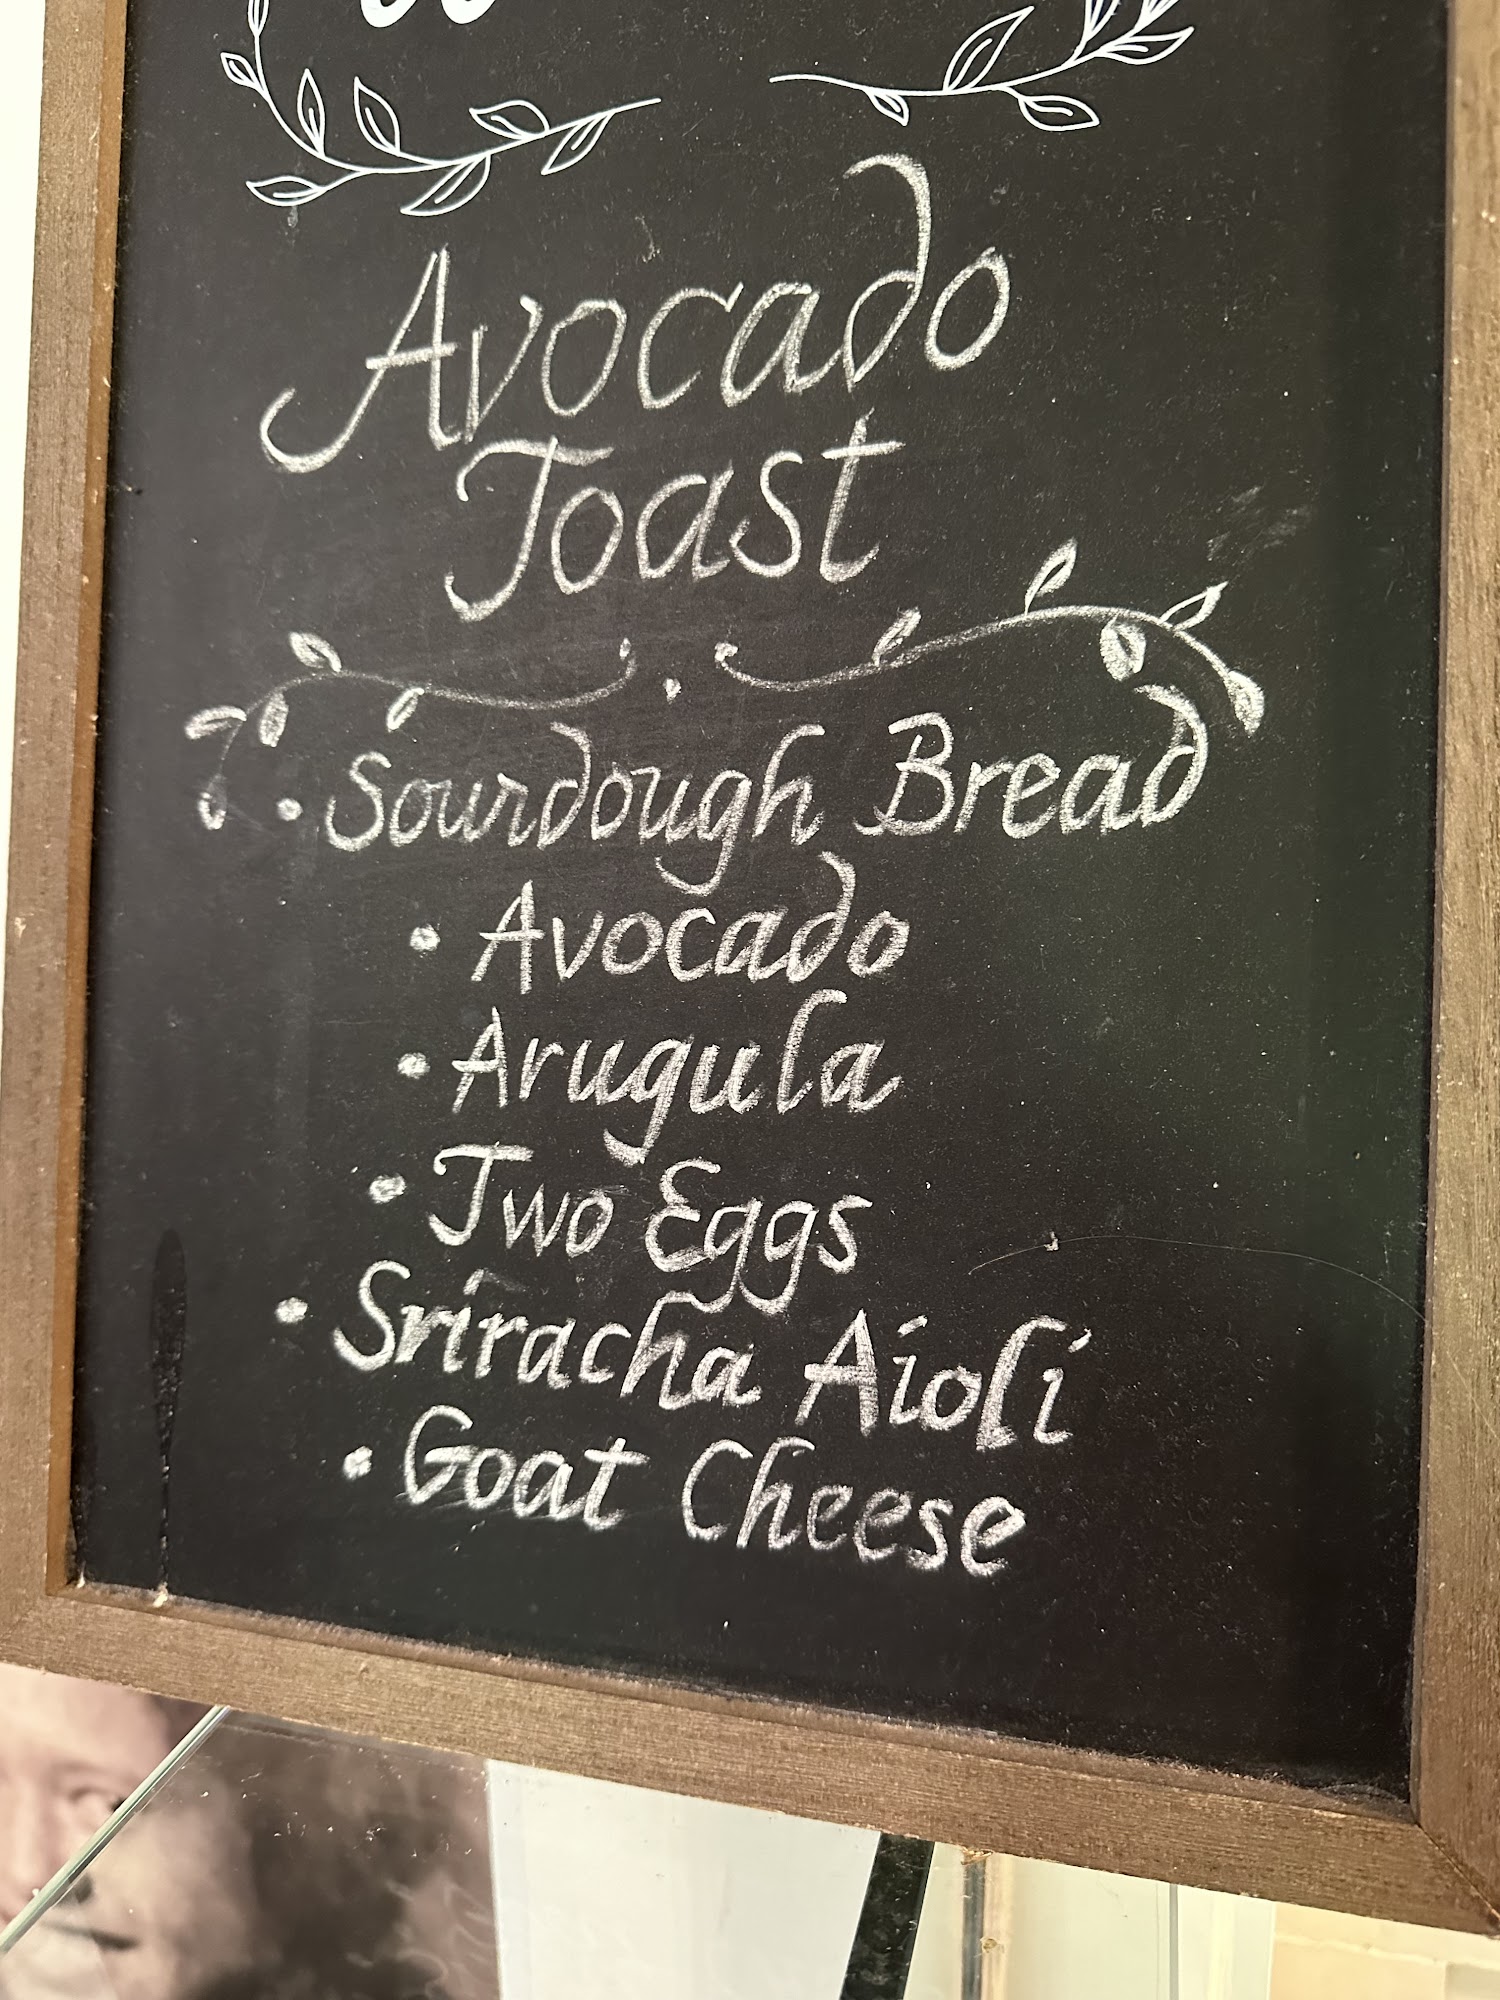 Avocado
Toast
• Sourdough Bread
• Avocado
• Arugula
• Two Eggs
• Sriracha Aioli
• Goat Cheese